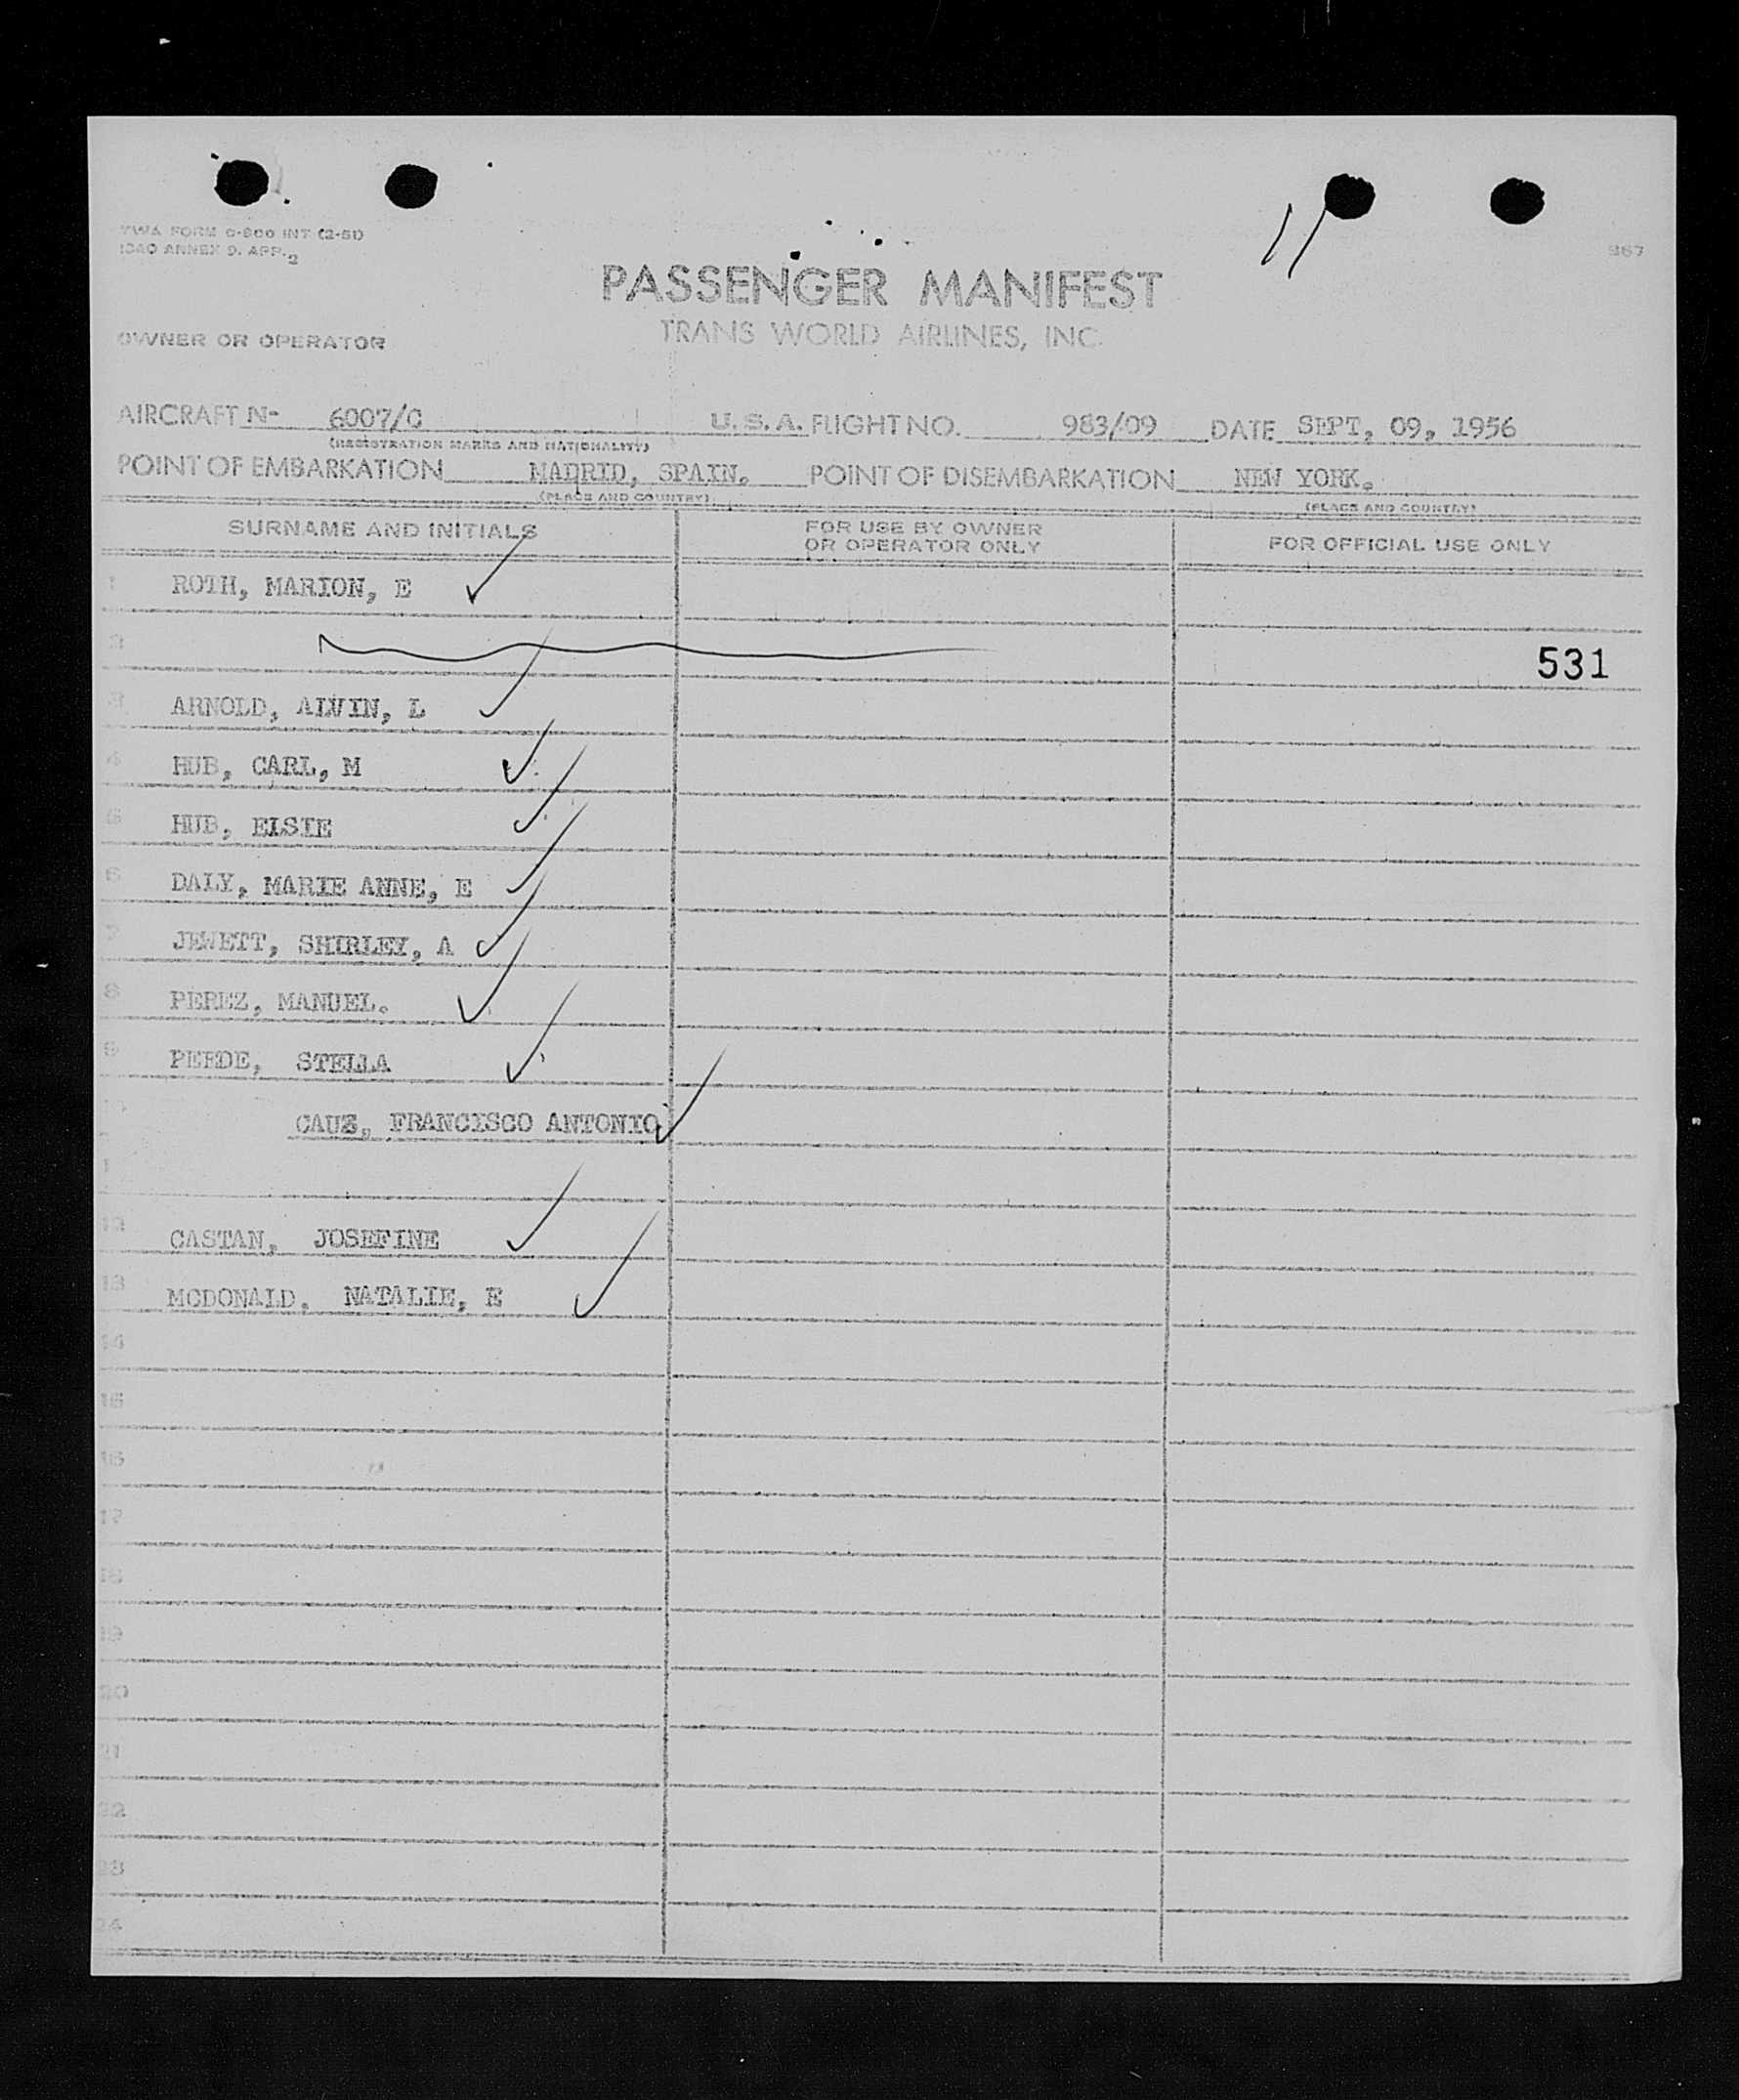 TWA FORM 0-800 INT (2-51)
ICAO ANNEX 9. APP. 2
11
867
PASSENGER MANIFEST
OWNER OR OPERATOR TRANS WORLD AIRLINES, INC.
AIRCRAFT N- 6007/C U.S.A. FLIGHT NO. 983/09 DATE SEPT, 09, 1956
(REGISTRATION MARKS AND NATIONALITY)
POINT OF EMBARKATION MADRID, SPAIN. POINT OF DISEMBARKATION NEW YORK.
(PLACE AND COUNTRY) (PLACE AND COUNTRY)
SURNAME AND INITIALS FOR USE BY OWNER OR OPERATOR ONLY FOR OFFICIAL USE ONLY
1 ROTH, MARION, E
2
531
3 ARNOLD, ALVIN, L
4 HUB, CARL, M
5 HUB, ELSIE
6 DALY, MARIE ANNE, E
7 JEWETT, SHIRLEY, A
8 PEREZ, MANUEL.
9 PERDE, STELLA
10 CAUZ, FRANCISCO ANTONIO
11
12 CASTAN, JOSEFINE
13 MCDONALD, NATALIE, E
14
15
16
17
18
19
20
21
22
23
24